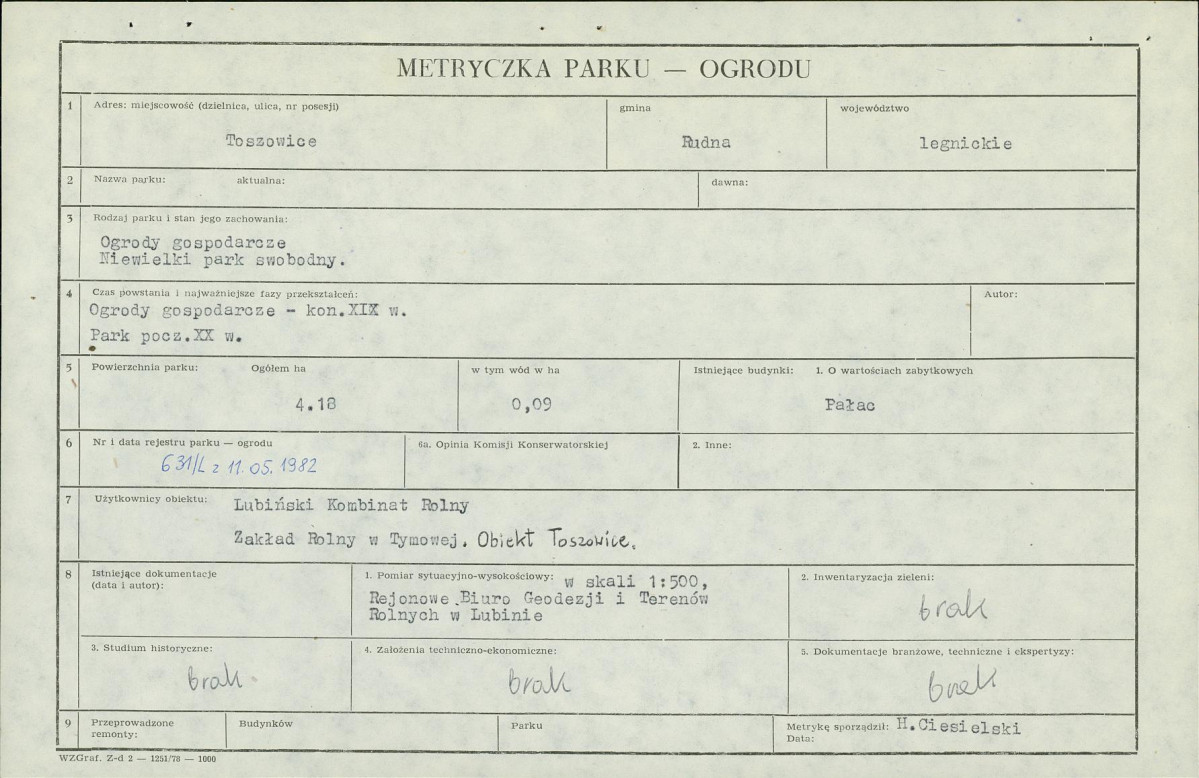 METRYCZKA PARKU — OGRODU
1 Adres: miejscowość (dzielnica, ulica, nr posesji)
Toszowice
gmina
Rudna
województwo
legnickie
2 Nazwa parku: aktualna:
dawna:
3 Rodzaj parku i stan jego zachowania:
Ogrody gospodarcze
Niewielki park swobodny.
4 Czas powstania i najważniejsze fazy przekształceń:
Ogrody gospodarcze - kon.XIX w.
Park pocz.XX w.
Autor:
5 Powierzchnia parku: Ogółem ha
4.18
w tym wód w ha
0,09
Istniejące budynki: 1. O wartościach zabytkowych
Pałac
6 Nr i data rejestru parku — ogrodu
631/L z 11.05.1982
6a. Opinia Komisji Konserwatorskiej
2. Inne:
7 Użytkownicy obiektu: Lubiński Kombinat Rolny
Zakład Rolny w Tymowej. Obiekt Toszowice.
8 Istniejące dokumentacje
(data i autor):
1. Pomiar sytuacyjno-wysokościowy: w skali 1:500,
Rejonowe Biuro Geodezji i Terenów
Rolnych w Lubinie
2. Inwentaryzacja zieleni:
brak
3. Studium historyczne:
brak
4. Założenia techniczno-ekonomiczne:
brak
5. Dokumentacje branżowe, techniczne i ekspertyzy:
brak
9 Przeprowadzone
remonty:
Budynków
Parku
Metrykę sporządził: H.Ciesielski
Data:
WZGraf. Z-d 2 — 1251/78 — 1000